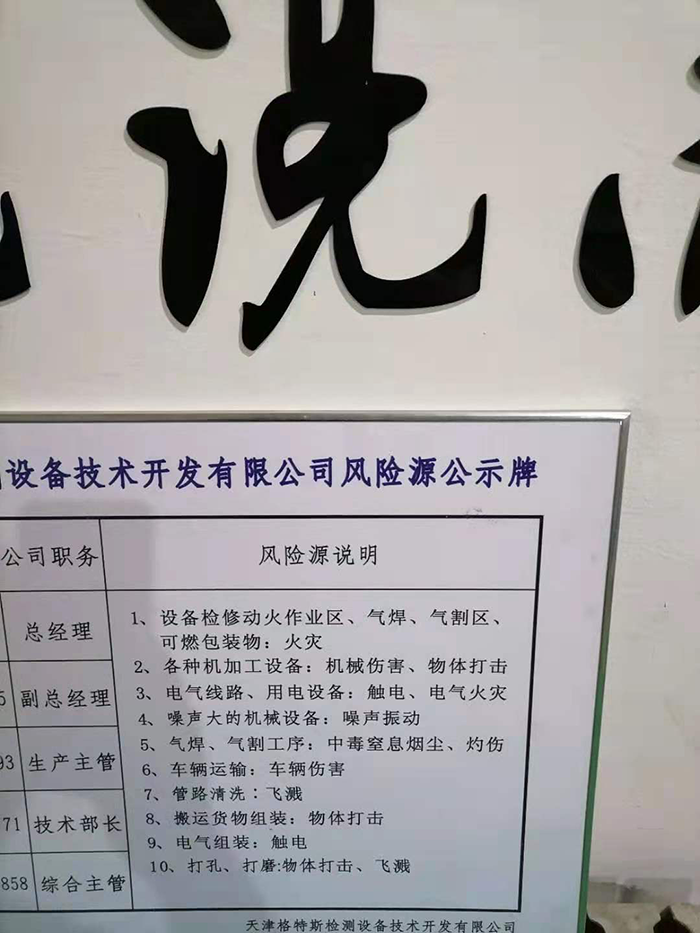 说
设备技术开发有限公司风险源公示牌
公司职务
风险源说明
总经理
5 副总经理
93 生产主管
71 技术部长
858 综合主管
1、设备检修动火作业区、气焊、气割区、
可燃包装物：火灾
2、各种机加工设备：机械伤害、物体打击
3、电气线路、用电设备：触电、电气火灾
4、噪声大的机械设备：噪声振动
5、气焊、气割工序：中毒窒息烟尘、灼伤
6、车辆运输：车辆伤害
7、管路清洗：飞溅
8、搬运货物组装：物体打击
9、电气组装：触电
10、打孔、打磨:物体打击、飞溅
天津格特斯检测设备技术开发有限公司